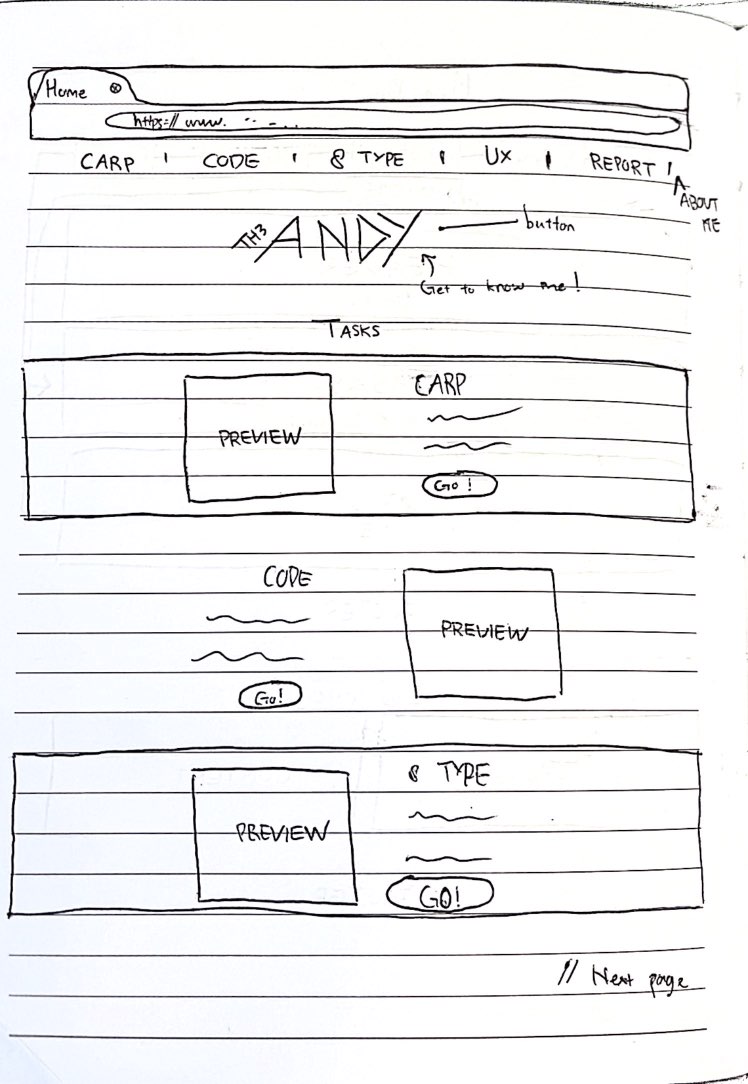 Home ⊗
https://www. .. - ...
CARP | CODE | 8 TYPE | UX | REPORT |
ABOUT
ME
TH3 ANDY
button
Get to know me!
TASKS
PREVIEW
CARP
Go!
CODE
Go!
PREVIEW
PREVIEW
8 TYPE
GO!
// Next page